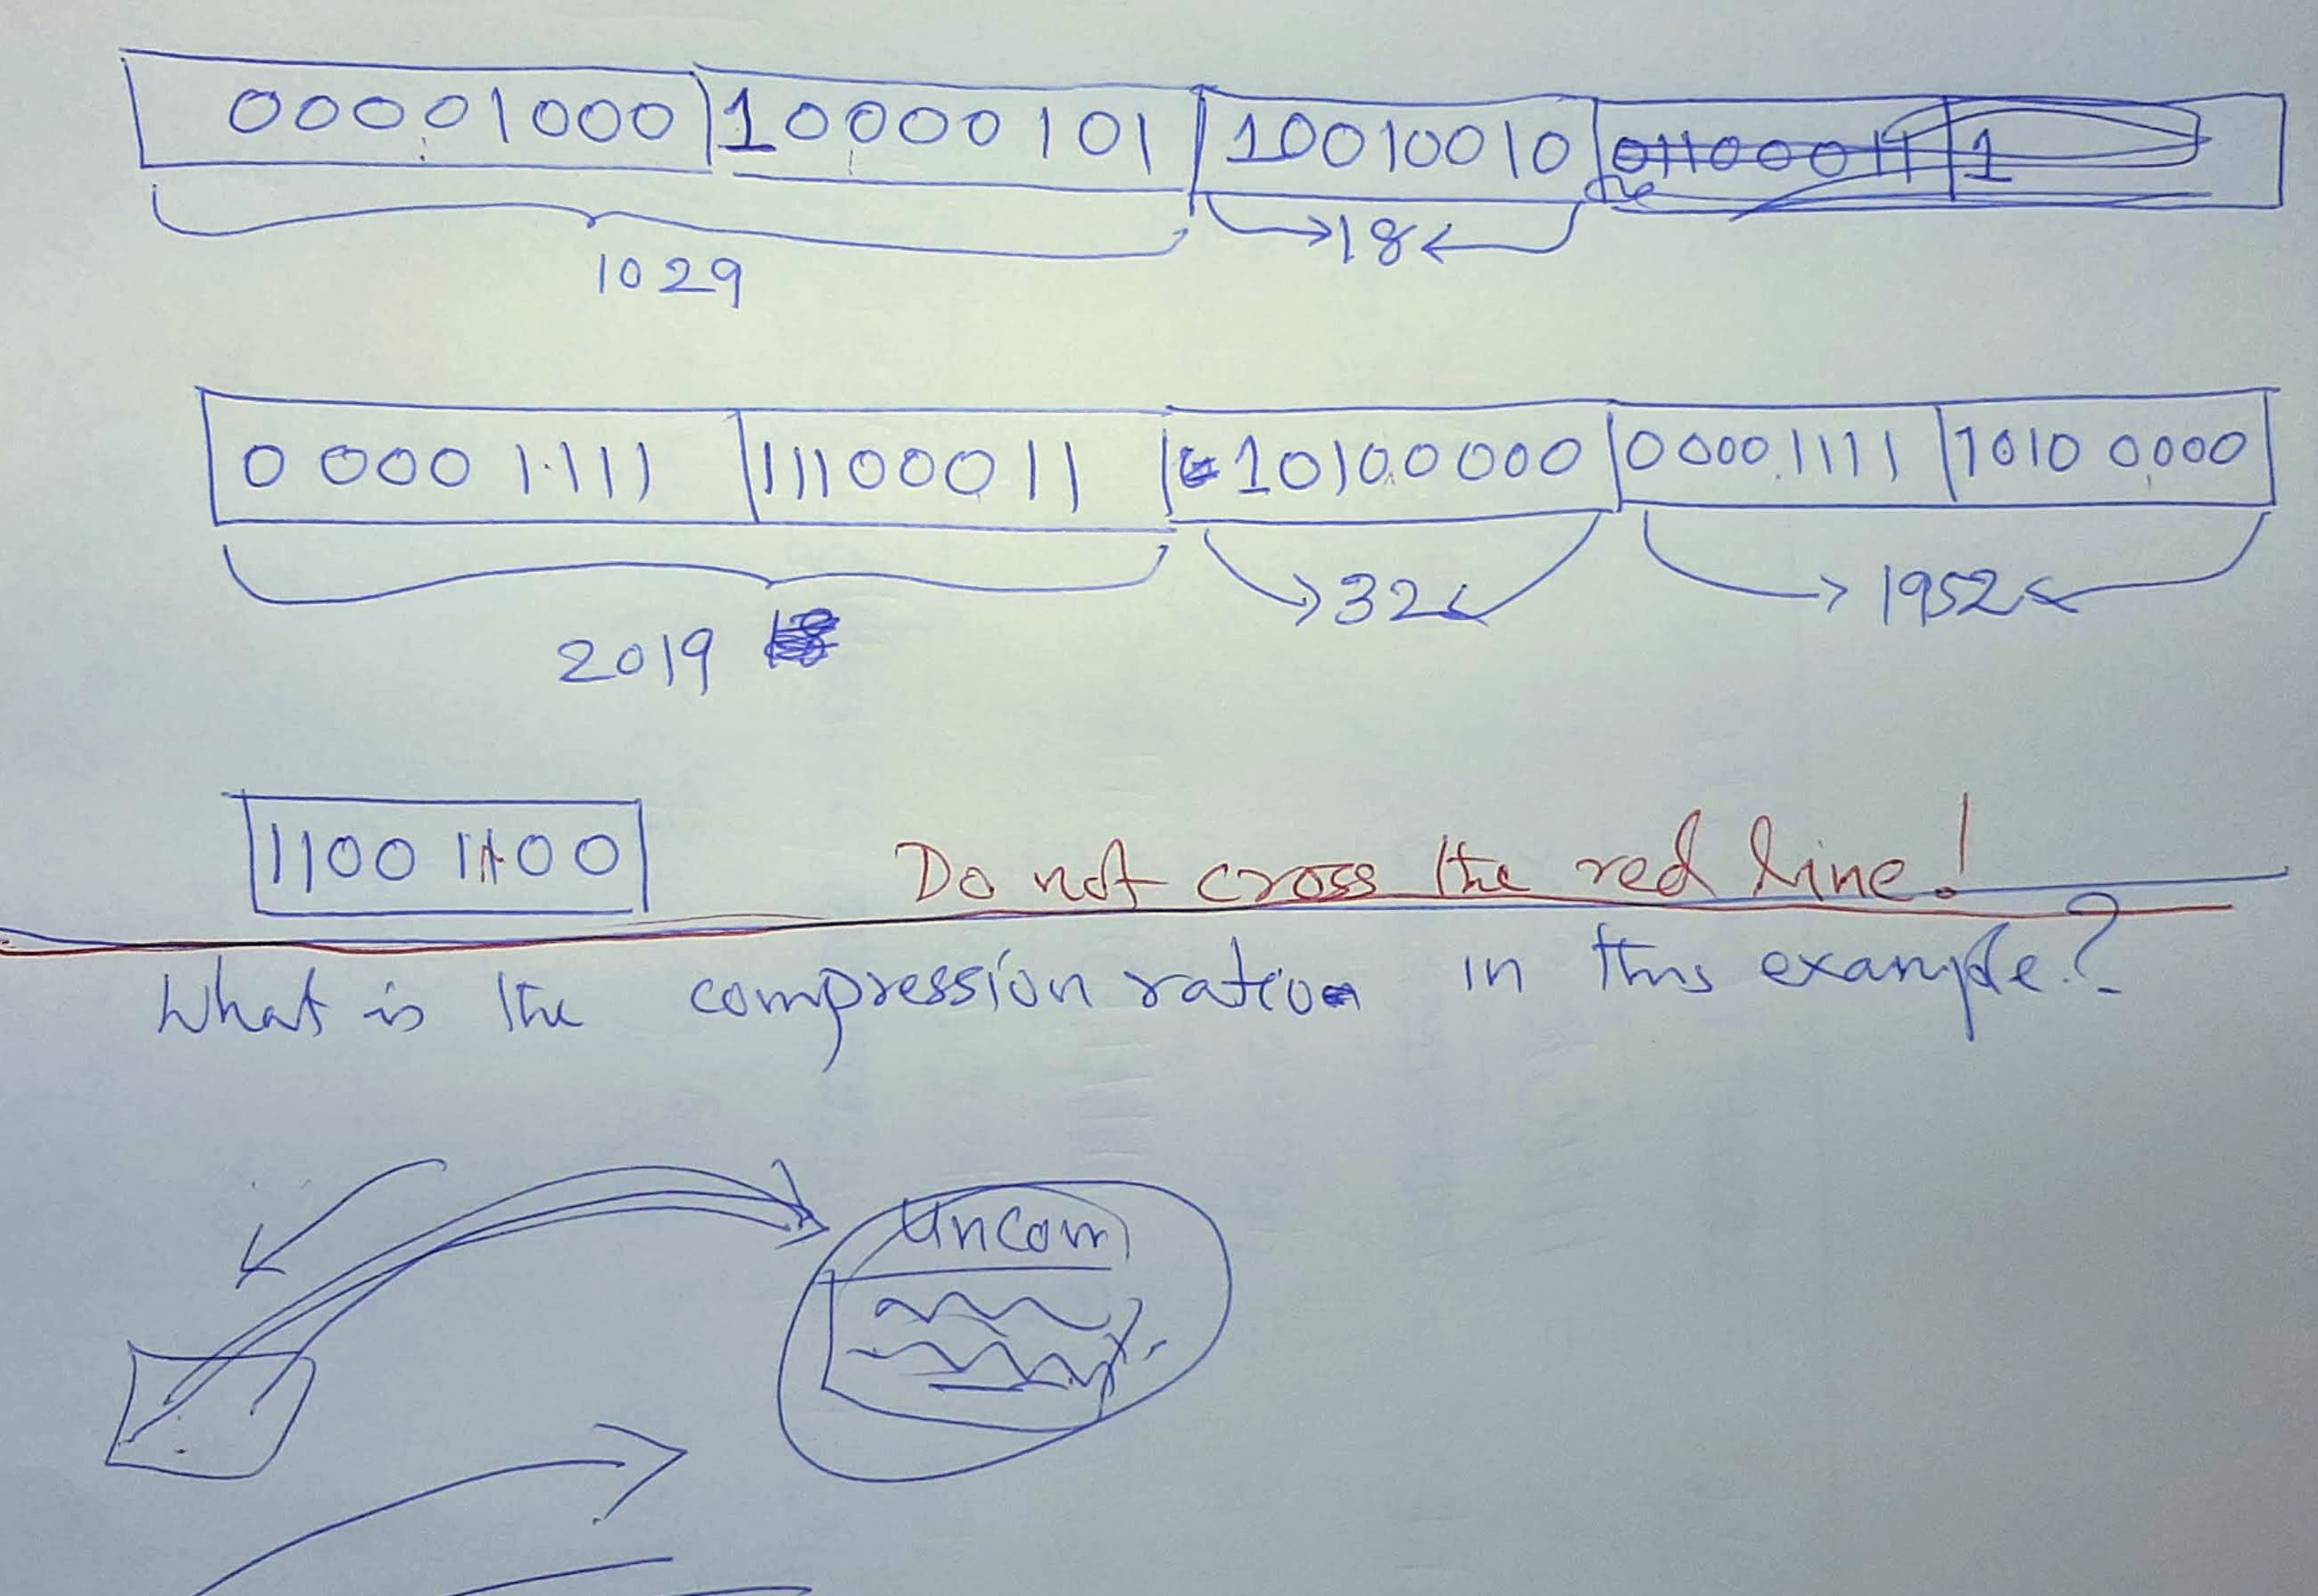 00001000 10000101 10010010 01100011 1
1029 18
0 000 1111 11100011 10100000 0000 1111 1010 0000
2019 32 1952
1100 1100
Do not cross the red line!
What is the compression ratio in this example?
Uncom